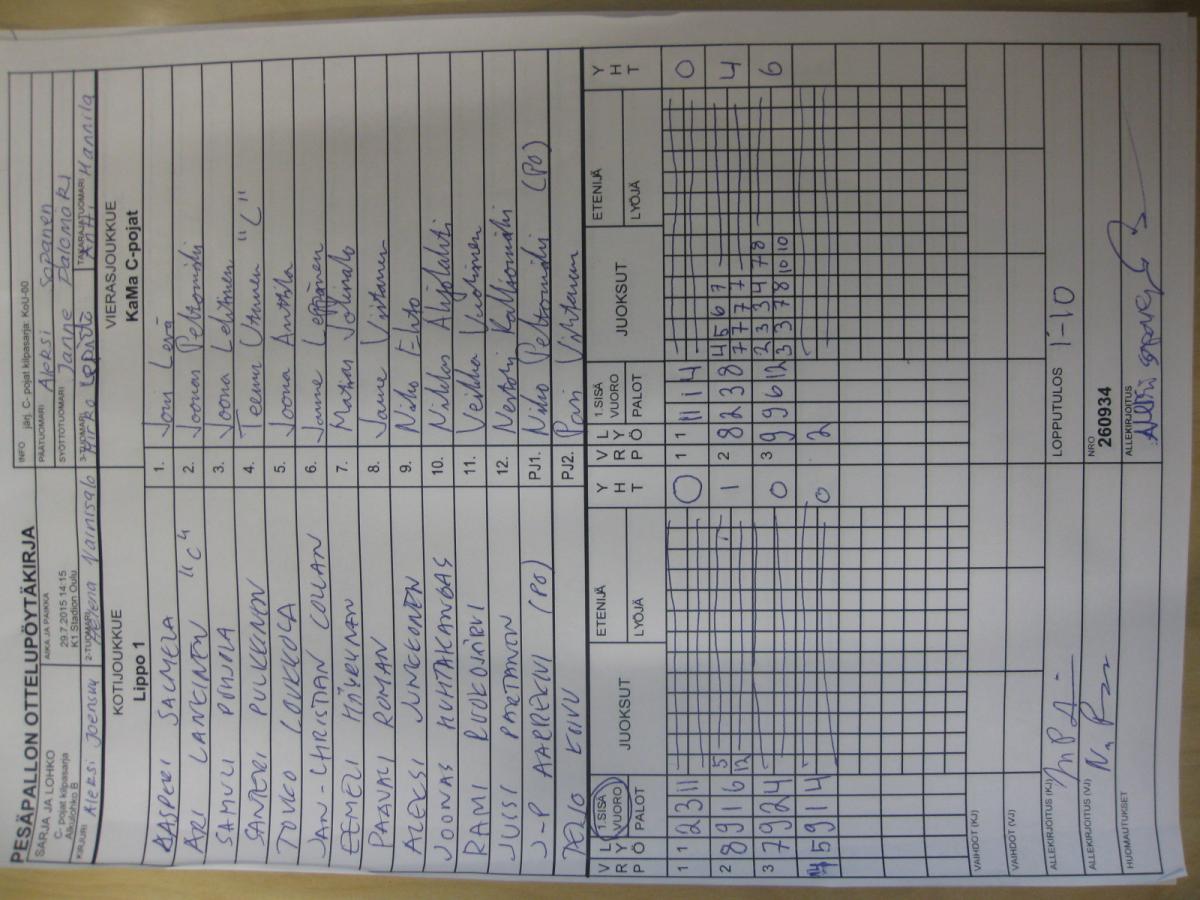 PESÄPALLON OTTELUPÖYTÄKIRJA
SARJA JA LOHKO
C- pojat kilpasarja
Alkulohko B
AIKA JA PAIKKA
29.7.2015 14:15
K1 Stadion Oulu
INFO
järj. C- pojat kilpasarja: KoU-00
PÄÄTUOMARI Aleksi Sopanen
SYÖTTÖTUOMARI Janne Palomäki
KIRJURI Aleksi Joensuu
2-TUOMARI Helena Vainisalo
3-TUOMARI Mirka
TAKARAJATUOMARI Antti Hannila
KOTIJOUKKUE
Lippo 1
VIERASJOUKKUE
KaMa C-pojat
KASPERI SALMELA 1. Joni Levä
"C" 2. Joonas
SAMULI POHJOLA 3. Joona Lehtinen
SANTERI PULKKINEN 4. Teemu "C"
TOUKO LOUKKOLA 5. Joona Anttila
JAN-CHRISTIAN 6. Janne Leppänen
EEMELI 7.
PAAVALI ROMAN 8.
ALEKSI JUNKKONEN 9. Niko
JOONAS HUHTAKANGAS 10. Niklas Ahjolahti
RAMI RUOKOJÄRVI 11. Veikka
JUSSI PARTANEN 12.
J-P (PO) PJ1. Niko (PO)
PJ2. Pasi
V R P L Y Ö 1.SISÄ VUORO PALOT JUOKSUT ETENIJÄ LYÖJÄ Y H T V R P L Y Ö 1.SISÄ VUORO PALOT JUOKSUT ETENIJÄ LYÖJÄ Y H T
1 1 2 3 11 0 1 1 11 1 4 0
2 8 9 1 6 5 12 1 2 8 8 2 3 8 4 5 6 7 7 7 7 7 4
3 7 9 2 4 0 3 9 9 6 12 2 3 3 4 7 8 3 3 7 8 10 10 6
4 5 9 1 4 0 2
VAIHDOT (KJ)
VAIHDOT (VJ)
ALLEKIRJOITUS (KJ)
LOPPUTULOS 1-10
ALLEKIRJOITUS (VJ)
NRO
260934
HUOMAUTUKSET
ALLEKIRJOITUS